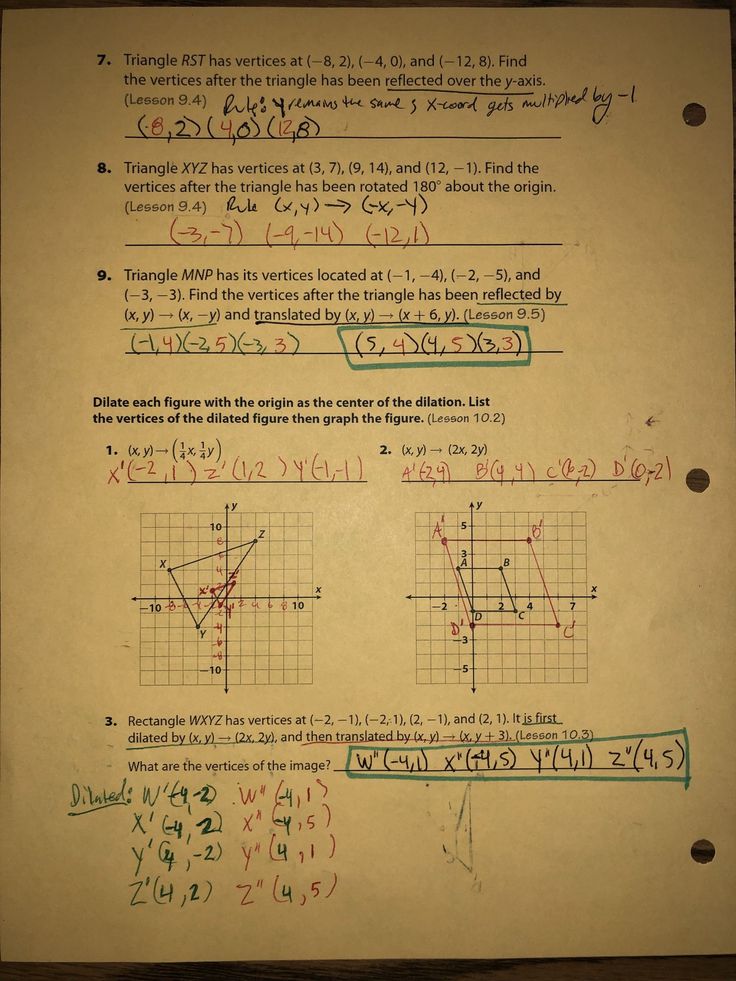 7. Triangle RST has vertices at (−8, 2), (−4, 0), and (−12, 8). Find
the vertices after the triangle has been reflected over the y-axis.
(Lesson 9.4) Rule: y remains the same & x-coord gets multiplied by -1
(8,2) (4,0) (12,8)
8. Triangle XYZ has vertices at (3, 7), (9, 14), and (12, −1). Find the
vertices after the triangle has been rotated 180° about the origin.
(Lesson 9.4) Rule (x,y) → (-x,-y)
(-3,-7) (-9,-14) (-12,1)
9. Triangle MNP has its vertices located at (−1, −4), (−2, −5), and
(−3, −3). Find the vertices after the triangle has been reflected by
(x, y) → (x, −y) and translated by (x, y) → (x + 6, y). (Lesson 9.5)
(-1,4)(-2,5)(-3,3) (5,4)(4,5)(3,3)
Dilate each figure with the origin as the center of the dilation. List
the vertices of the dilated figure then graph the figure. (Lesson 10.2)
1. (x, y) → (1/4x, 1/4y) 2. (x, y) → (2x, 2y)
X'(-2,1) Z'(1,2) Y'(-1,-1) A'(-2,4) B'(4,4) C'(6,-2) D'(0,-2)
y y
10 A' 5 B'
8
Z 3
X A B
X' Z' x x
−10 -8 -6 -4 Y' 2 4 6 8 10 −2 D 2 C 4 7
-4
Y D' −3 C'
-6
-8
−10 −5
3. Rectangle WXYZ has vertices at (−2, −1), (−2, 1), (2, −1), and (2, 1). It is first
dilated by (x, y) → (2x, 2y), and then translated by (x, y) → (x, y + 3). (Lesson 10.3)
What are the vertices of the image? W"(-4,1) X"(-4,5) Y"(4,1) Z"(4,5)
Dilated: W'(-4,-2) W"(-4,1)
X'(-4,2) X"(-4,5)
Y'(4,-2) Y"(4,1)
Z'(4,2) Z"(4,5)